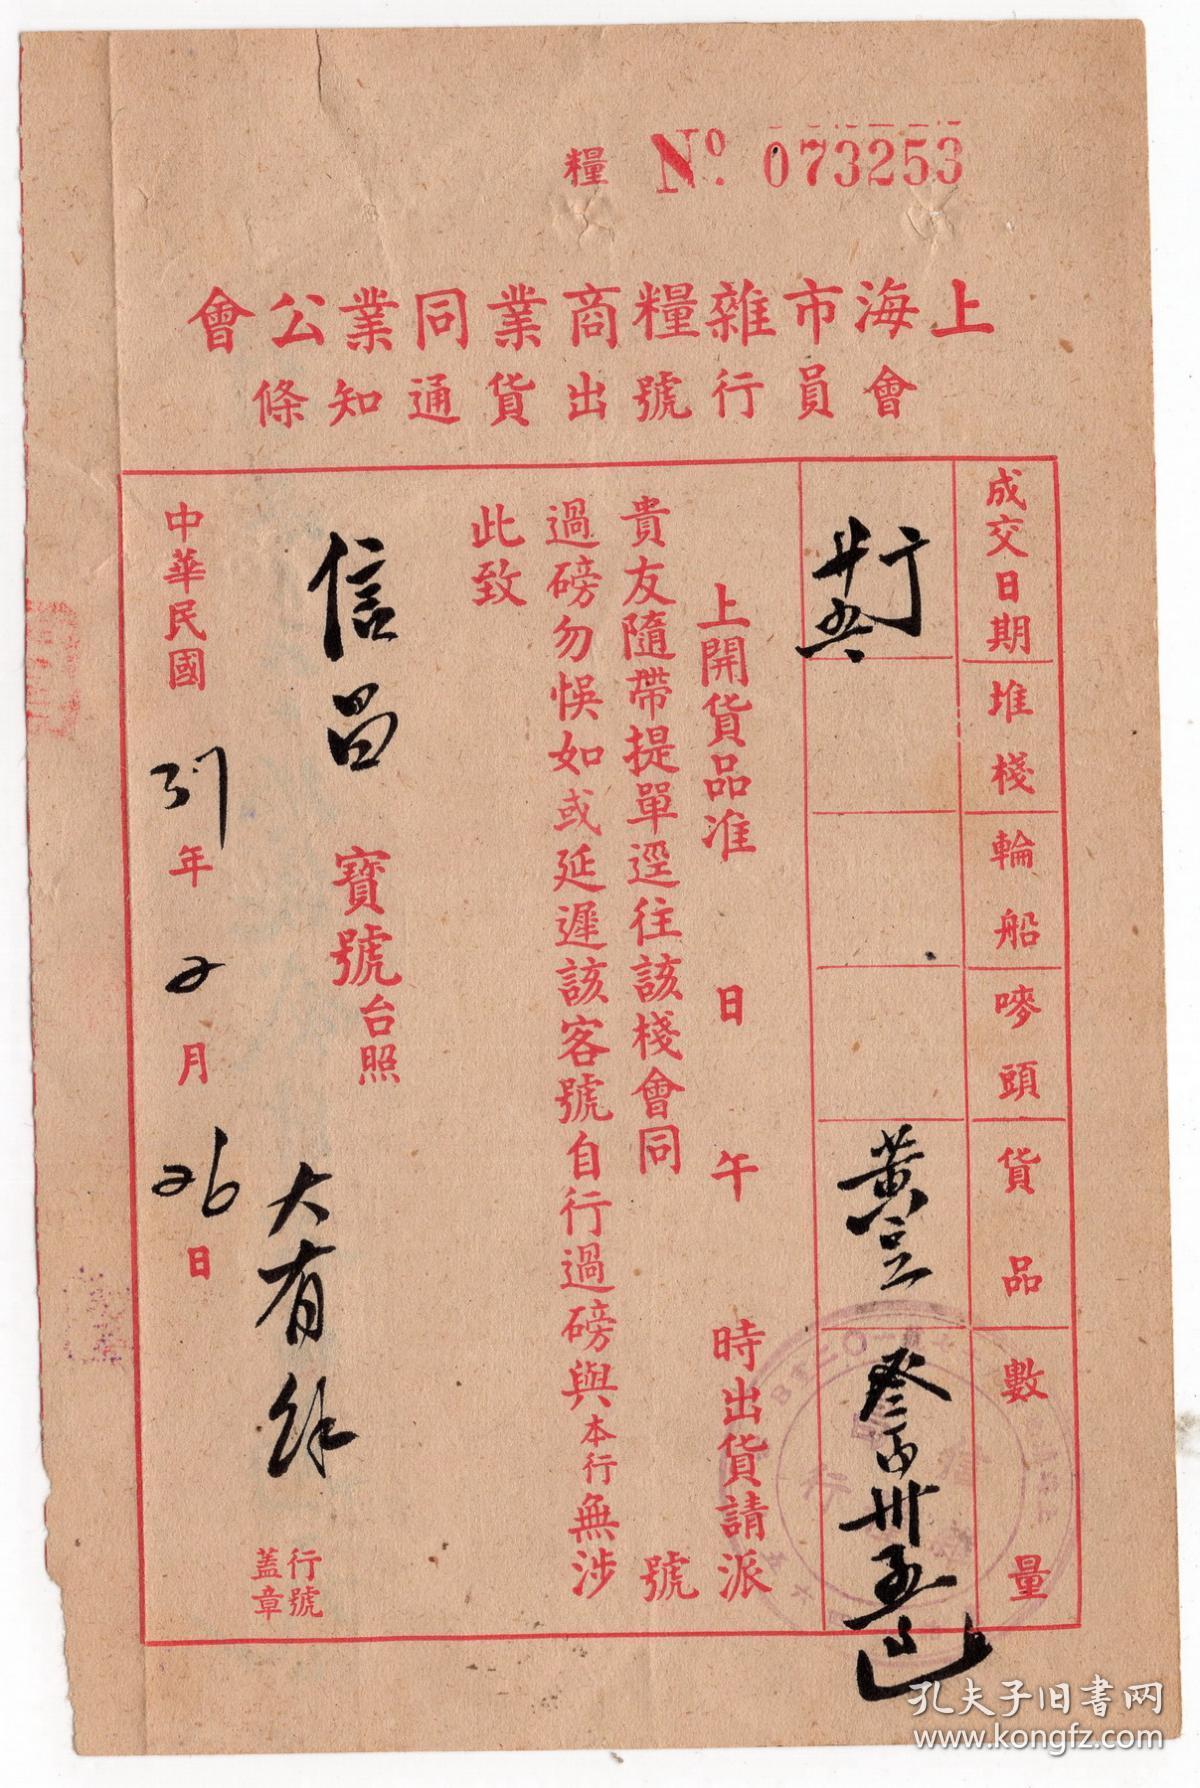 糧 No. 073253
上海市雜糧商業同業公會
會員行號出貨通知條
成交日期 堆棧 輪船 嘜頭 貨品 數量
黄豆 叁百卅五
上開貨品準 日 午 時出貨請派
貴友隨帶提單逕往該棧會同 號
過磅勿悞如或延遲該客號自行過磅與本行無涉
此致
信昌 寶號台照
大有餘 行號
蓋章
中華民國 31 年 2 月 26 日
孔夫子旧书网
www.kongfz.com